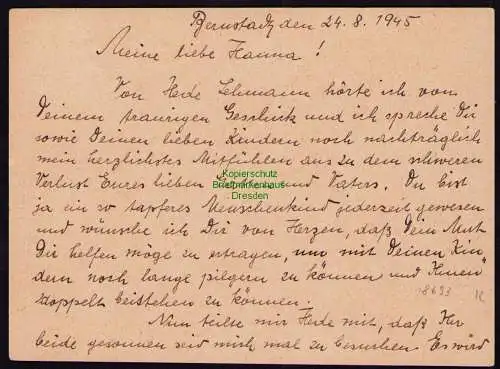 Bernstadt, den 24.8.1945
Meine liebe Hanna!
Von Hede Lehmann hörte ich von
Deinem traurigen Geschick und ich spreche Dir
sowie Deinen lieben Kindern noch nachträglich
mein herzlichstes Mitfühlen aus zu dem schweren
Verlust Eures lieben und Vaters. Du bist
ja ein so tapferes Menschenkind jederzeit gewesen
und wünsche ich Dir von Herzen, daß Dein Mut
Dir helfen möge zu ertragen, um mit Deinen Kin-
dern noch lange pilgern zu können und Ihnen
doppelt beistehen zu können.
Nun teilte mir Hede mit, daß Ihr
beide gesonnen seid mich mal zu besuchen. Es wird
Kopierschutz
Briefmarkenhaus
Dresden